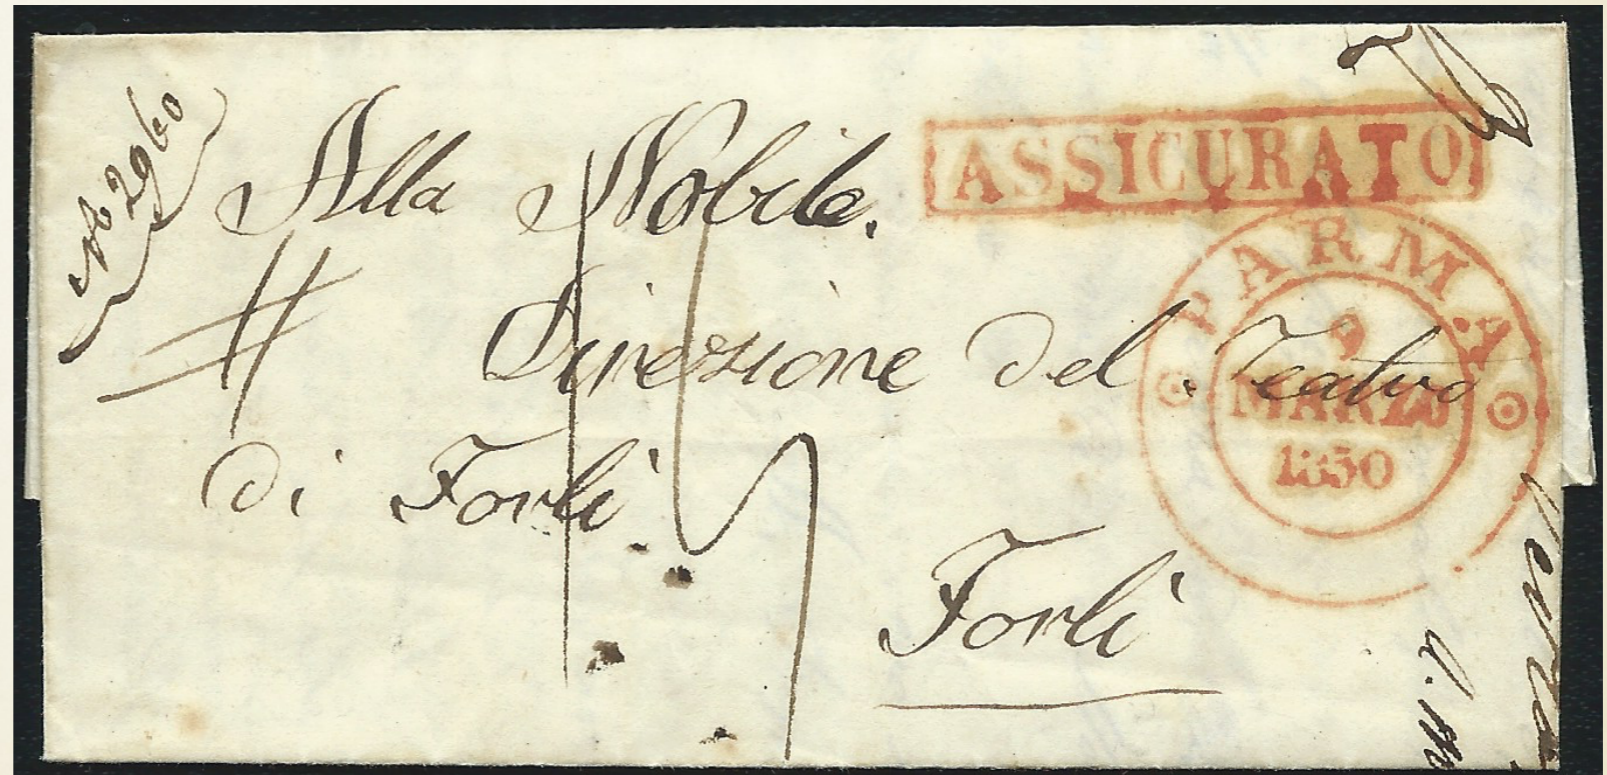 No 2960
Alla Nobile.
Direzione del Teatro
di Forlì.
Forlì
ASSICURATO
PARMA
9
MARZO
1850